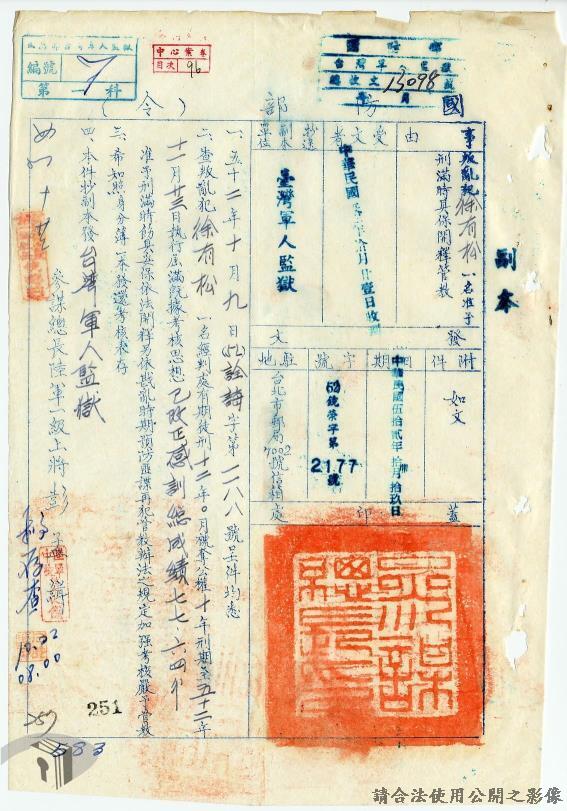 臺灣軍人監獄
編號 7
第一科
中心案卷
目次 96
13098
國防部（令）
副本
事由
叛亂犯徐有松一名准予刑滿時具保開釋管教
受文者
抄送副本單位
臺灣軍人監獄
中華民國
拾月廿壹日收
發文
附件
如文
日期
中華民國伍拾貳年拾月拾玖日
字號
(52)銳榮字第2177號
駐地
台北市郵局7002號信箱
蓋印處
參謀總長印
一、五十二年十月九日(52)詮諦字第一一八八號呈件均悉
二、查叛亂犯徐有松一名經判處有期徒刑十二年○月褫奪公權十年刑期至五十二年
十一月廿三日執行屆滿既據考核思想已改正感訓總成績七七六四分
准予刑滿時飭具妥保依法開釋另依戡亂時期預防匪諜再犯管教辦法之規定加强考核嚴予管教
三、希知照身分簿一本發還考核表存
四、本件抄副本發台灣軍人監獄
參謀總長陸軍一級上將彭孟緝
存查
10.22
08.00
251
583
請合法使用公開之影像